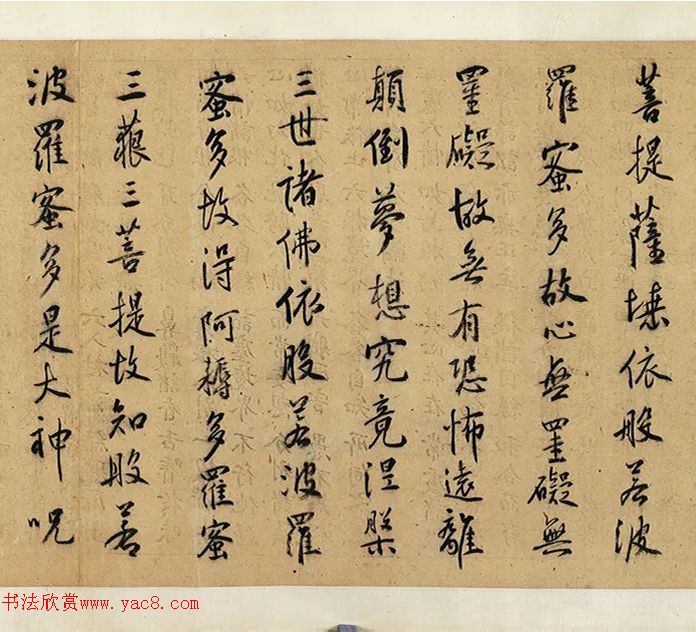 菩提薩埵依般若波
羅蜜多故心無罣礙無
罣礙故無有恐怖遠離
顛倒夢想究竟涅槃
三世諸佛依般若波羅
蜜多故得阿耨多羅蜜
三藐三菩提故知般若
波羅蜜多是大神呪
书法欣赏www.yac8.com